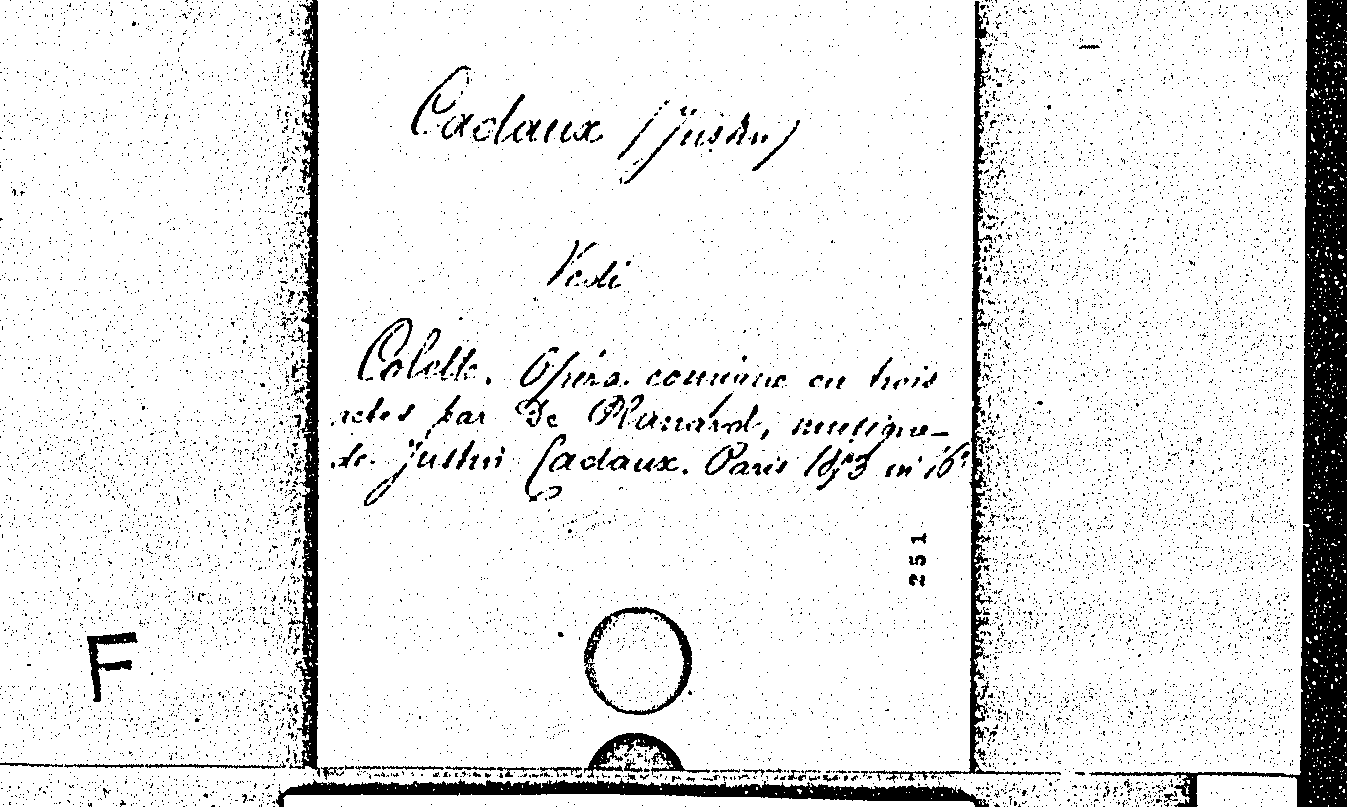 Cadaux (Justin)
Vedi
Colette. Opéra comique en trois
actes par De Planard, musique
de Justin Cadaux. Paris in 16°
251
F